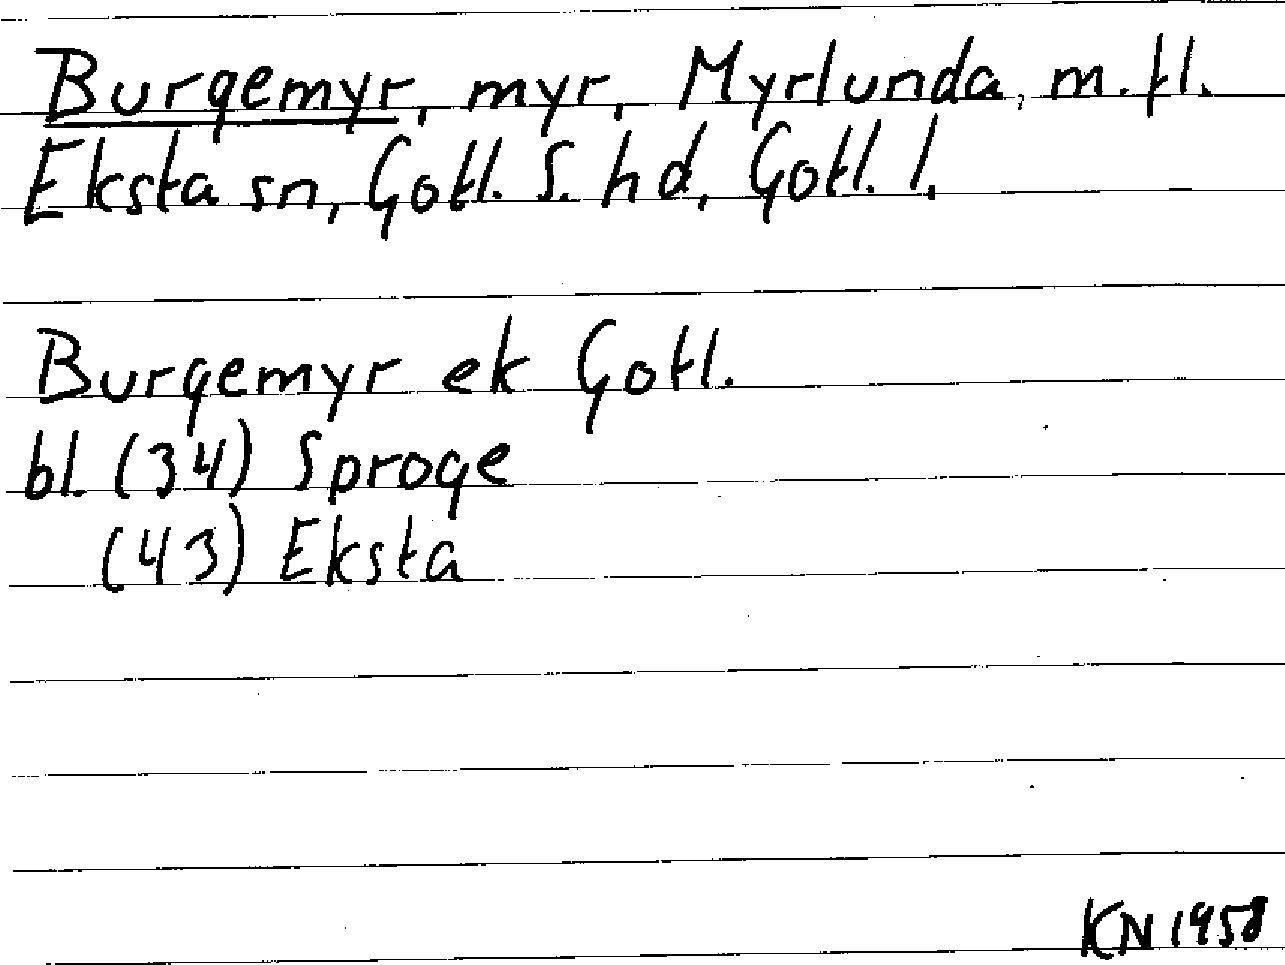 Burgemyr, myr, Myrlunda, m.fl.
Eksta sn, Gotl. S. hd, Gotl. l.
Burgemyr ek Gotl.
bl. (34) Sproge
(43) Eksta
KN 1958